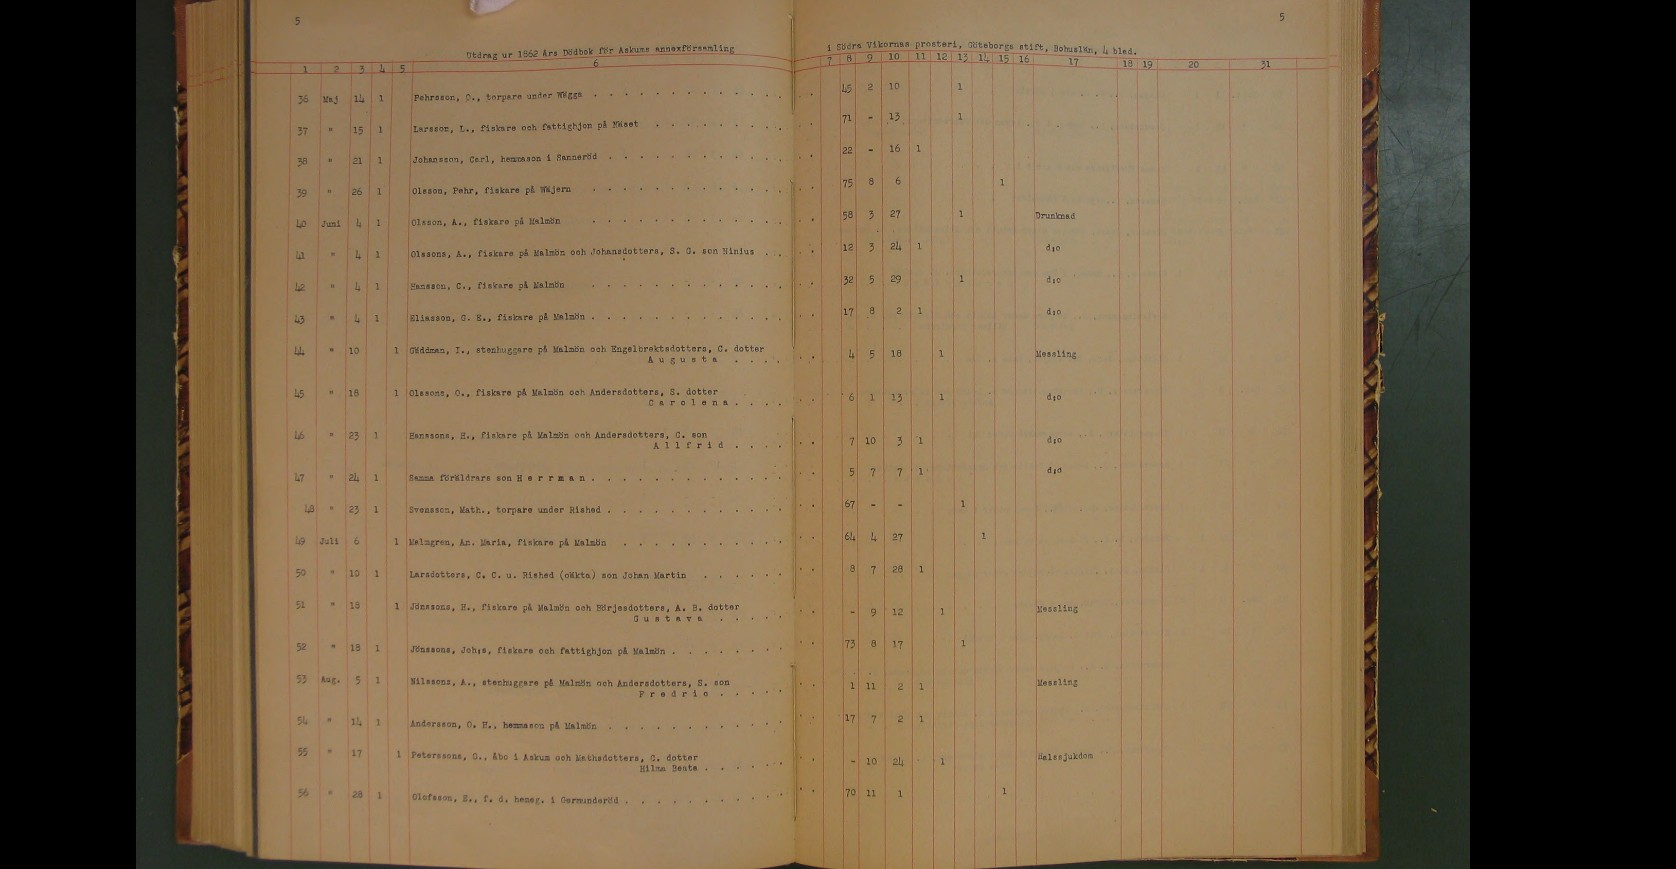 5
5
Utdrag ur 1862 års Dödbok för Askums annexförsamling i Södra Vikornas prosteri, Göteborgs stift, Bohuslän, 4 blad.
1 2 3 4 5 6 7 8 9 10 11 12 13 14 15 16 17 18 19 20 31
36 Maj 14 1 Pehrsson, O., torpare under Wägga 45 2 10 1
37 " 15 1 Larsson, L., fiskare och fattighjon på Näset 71 - 13 1
38 " 21 1 Johansson, Carl, hemmason i Sanneröd 22 - 16 1
39 " 26 1 Olsson, Pehr, fiskare på Wäjern 75 8 6 1
40 Juni 4 1 Olsson, A., fiskare på Malmön 58 3 27 1 Drunknad
41 " 4 1 Olssons, A., fiskare på Malmön och Johansdotters, S. G. son Ninius 12 3 24 1 d:o
42 " 4 1 Hansson, C., fiskare på Malmön 32 5 29 1 d:o
43 " 4 1 Eliasson, G. E., fiskare på Malmön 17 8 2 1 d:o
44 " 10 1 Gäddman, I., stenhuggare på Malmön och Engelbrektsdotters, C. dotter 4 5 18 1 Messling
Augusta
45 " 18 1 Olssons, O., fiskare på Malmön och Andersdotters, S. dotter 6 1 13 1 d:o
Carolena
46 " 23 1 Hanssons, H., fiskare på Malmön och Andersdotters, C. son 7 10 3 1 d:o
Allfrid
47 " 24 1 Samma föräldrars son Herrman 5 7 7 1 d:o
48 " 23 1 Svensson, Math., torpare under Rished 67 - - 1
49 Juli 6 1 Malmgren, An. Maria, fiskare på Malmön 64 4 27 1
50 " 10 1 Larsdotters, C. C. u. Rished (oäkta) son Johan Martin 8 7 28 1
51 " 18 1 Jönssons, H., fiskare på Malmön och Börjesdotters, A. B. dotter - 9 12 1 Messling
Gustava
52 " 18 1 Jönssons, Joh:s, fiskare och fattighjon på Malmön 73 8 17 1
53 Aug. 5 1 Nilssons, A., stenhuggare på Malmön och Andersdotters, S. son 1 11 2 1 Messling
Fredric
54 " 14 1 Andersson, O. H., hemmason på Malmön 17 7 2 1
55 " 17 1 Peterssons, O., åbo i Askum och Mathsdotters, C. dotter - 10 24 1 Halssjukdom
Hilma Beata
56 " 28 1 Olofsson, E., f. d. hemsg. i Germunderöd 70 11 1 1